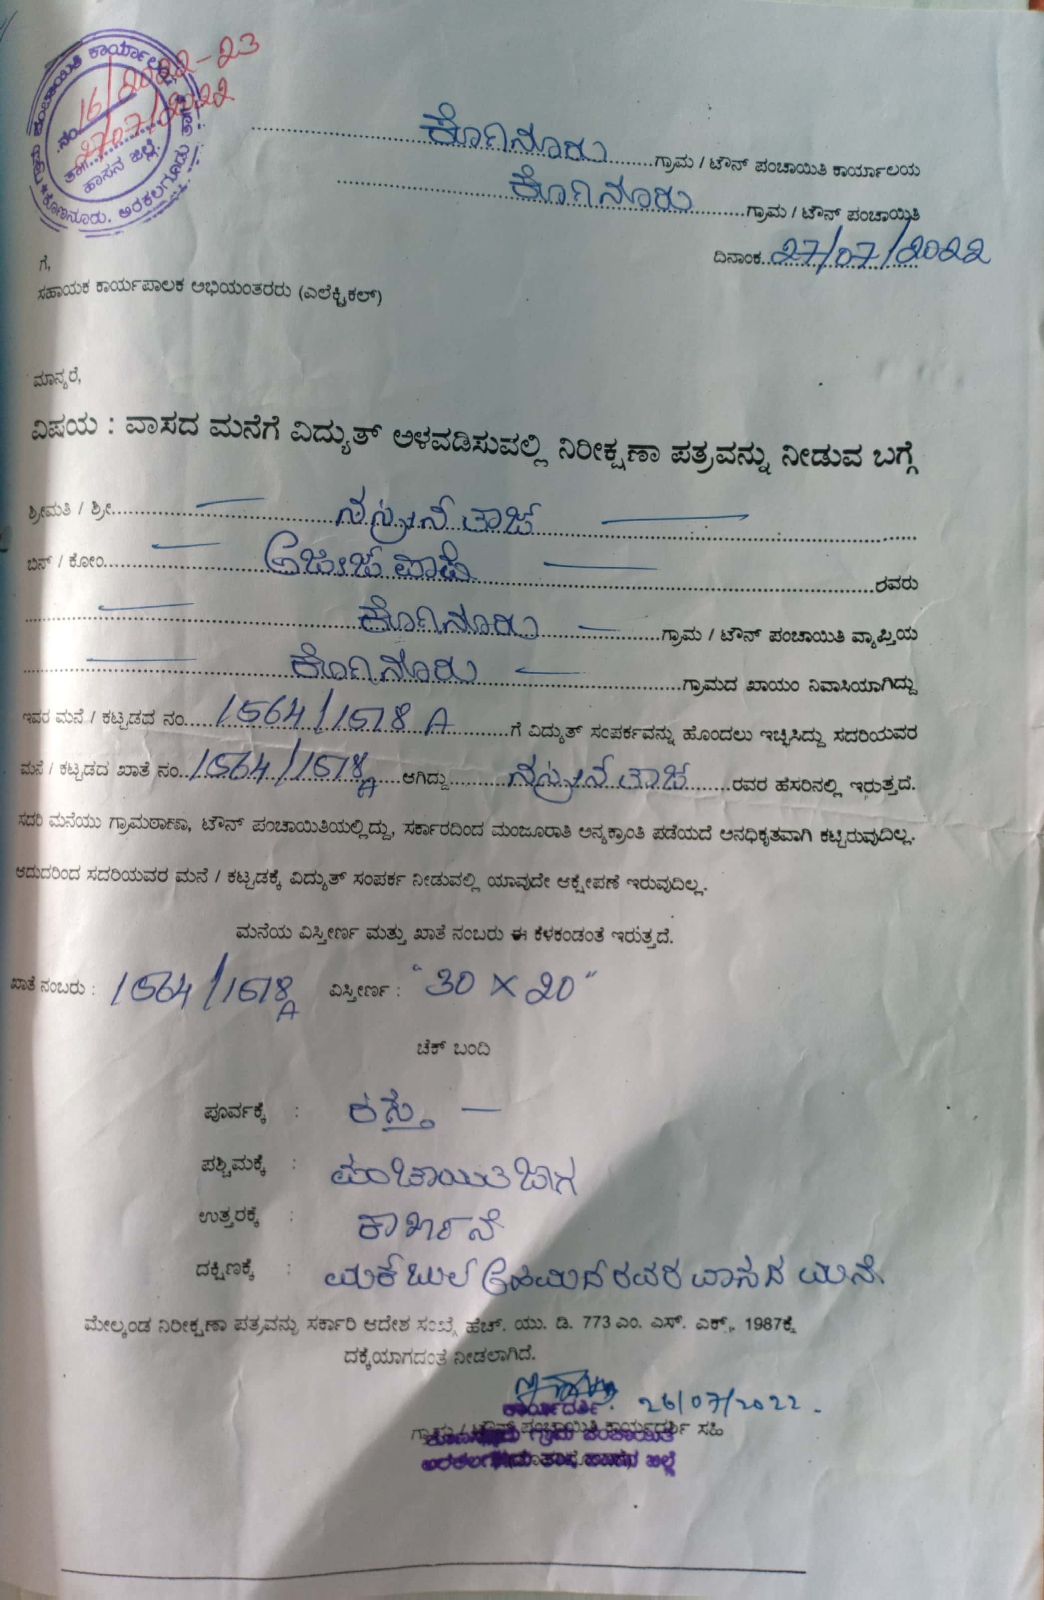 ಗ್ರಾಮ ಪಂಚಾಯಿತಿ ಕಾರ್ಯಾಲಯ
ನಂ. 16/2022-23
ತಾ. 27/07/2022
ಹಾಸನ ಜಿಲ್ಲೆ.
ಕೊಣನೂರು. ಅರಕಲಗೂಡು ತಾ||
ಕೊಣನೂರು ಗ್ರಾಮ / ಟೌನ್ ಪಂಚಾಯಿತಿ ಕಾರ್ಯಾಲಯ
ಕೊಣನೂರು ಗ್ರಾಮ / ಟೌನ್ ಪಂಚಾಯಿತಿ
ದಿನಾಂಕ 27/07/2022
ಗೆ,
ಸಹಾಯಕ ಕಾರ್ಯಪಾಲಕ ಅಭಿಯಂತರರು (ಎಲೆಕ್ಟ್ರಿಕಲ್)
ಮಾನ್ಯರೆ,
ವಿಷಯ : ವಾಸದ ಮನೆಗೆ ವಿದ್ಯುತ್ ಅಳವಡಿಸುವಲ್ಲಿ ನಿರೀಕ್ಷಣಾ ಪತ್ರವನ್ನು ನೀಡುವ ಬಗ್ಗೆ
ಶ್ರೀಮತಿ / ಶ್ರೀ ನಸ್ರೀನ್ ತಾಜ್
ಬಿನ್ / ಕೋಂ ಅಜೀಜ್ ಪಾಷ ರವರು
ಕೊಣನೂರು ಗ್ರಾಮ / ಟೌನ್ ಪಂಚಾಯಿತಿ ವ್ಯಾಪ್ತಿಯ
ಕೊಣನೂರು ಗ್ರಾಮದ ಖಾಯಂ ನಿವಾಸಿಯಾಗಿದ್ದು
ಇವರ ಮನೆ / ಕಟ್ಟಡದ ನಂ. 1564/1578 A ಗೆ ವಿದ್ಯುತ್ ಸಂಪರ್ಕವನ್ನು ಹೊಂದಲು ಇಚ್ಛಿಸಿದ್ದು ಸದರಿಯವರ
ಮನೆ / ಕಟ್ಟಡದ ಖಾತೆ ನಂ. 1564/1578 A ಆಗಿದ್ದು ನಸ್ರೀನ್ ತಾಜ್ ರವರ ಹೆಸರಿನಲ್ಲಿ ಇರುತ್ತದೆ.
ಸದರಿ ಮನೆಯು ಗ್ರಾಮಠಾಣಾ, ಟೌನ್ ಪಂಚಾಯಿತಿಯಲ್ಲಿದ್ದು, ಸರ್ಕಾರದಿಂದ ಮಂಜೂರಾತಿ ಅನ್ಯಕ್ರಾಂತಿ ಪಡೆಯದೆ ಅನಧಿಕೃತವಾಗಿ ಕಟ್ಟಿರುವುದಿಲ್ಲ.
ಆದುದರಿಂದ ಸದರಿಯವರ ಮನೆ / ಕಟ್ಟಡಕ್ಕೆ ವಿದ್ಯುತ್ ಸಂಪರ್ಕ ನೀಡುವಲ್ಲಿ ಯಾವುದೇ ಆಕ್ಷೇಪಣೆ ಇರುವುದಿಲ್ಲ.
ಮನೆಯ ವಿಸ್ತೀರ್ಣ ಮತ್ತು ಖಾತೆ ನಂಬರು ಈ ಕೆಳಕಂಡಂತೆ ಇರುತ್ತದೆ.
ಖಾತೆ ನಂಬರು : 1564/1578 A ವಿಸ್ತೀರ್ಣ : "30 X 20"
ಚೆಕ್ ಬಂದಿ
ಪೂರ್ವಕ್ಕೆ : ರಸ್ತೆ —
ಪಶ್ಚಿಮಕ್ಕೆ : ಪಂಚಾಯಿತಿ ಜಾಗ
ಉತ್ತರಕ್ಕೆ : ಕಾರ್ಖಾನೆ
ದಕ್ಷಿಣಕ್ಕೆ : ಮಕಬುಲ್ ಅಹಮದ್ ರವರ ವಾಸದ ಮನೆ.
ಮೇಲ್ಕಂಡ ನಿರೀಕ್ಷಣಾ ಪತ್ರವನ್ನು ಸರ್ಕಾರಿ ಆದೇಶ ಸಂಖ್ಯೆ ಹೆಚ್. ಯು. ಡಿ. 773 ಎಂ. ಎಸ್. ಎಕ್ಸ್. 1987ಕ್ಕೆ
ದಕ್ಕೆಯಾಗದಂತೆ ನೀಡಲಾಗಿದೆ.
26/07/2022.
ಕಾರ್ಯದರ್ಶಿ
ಗ್ರಾಮ / ಟೌನ್ ಪಂಚಾಯಿತಿ ಕಾರ್ಯದರ್ಶಿ ಸಹಿ
ಗ್ರಾಮ ಪಂಚಾಯಿತಿ
ಹಾಸನ ಜಿಲ್ಲೆ